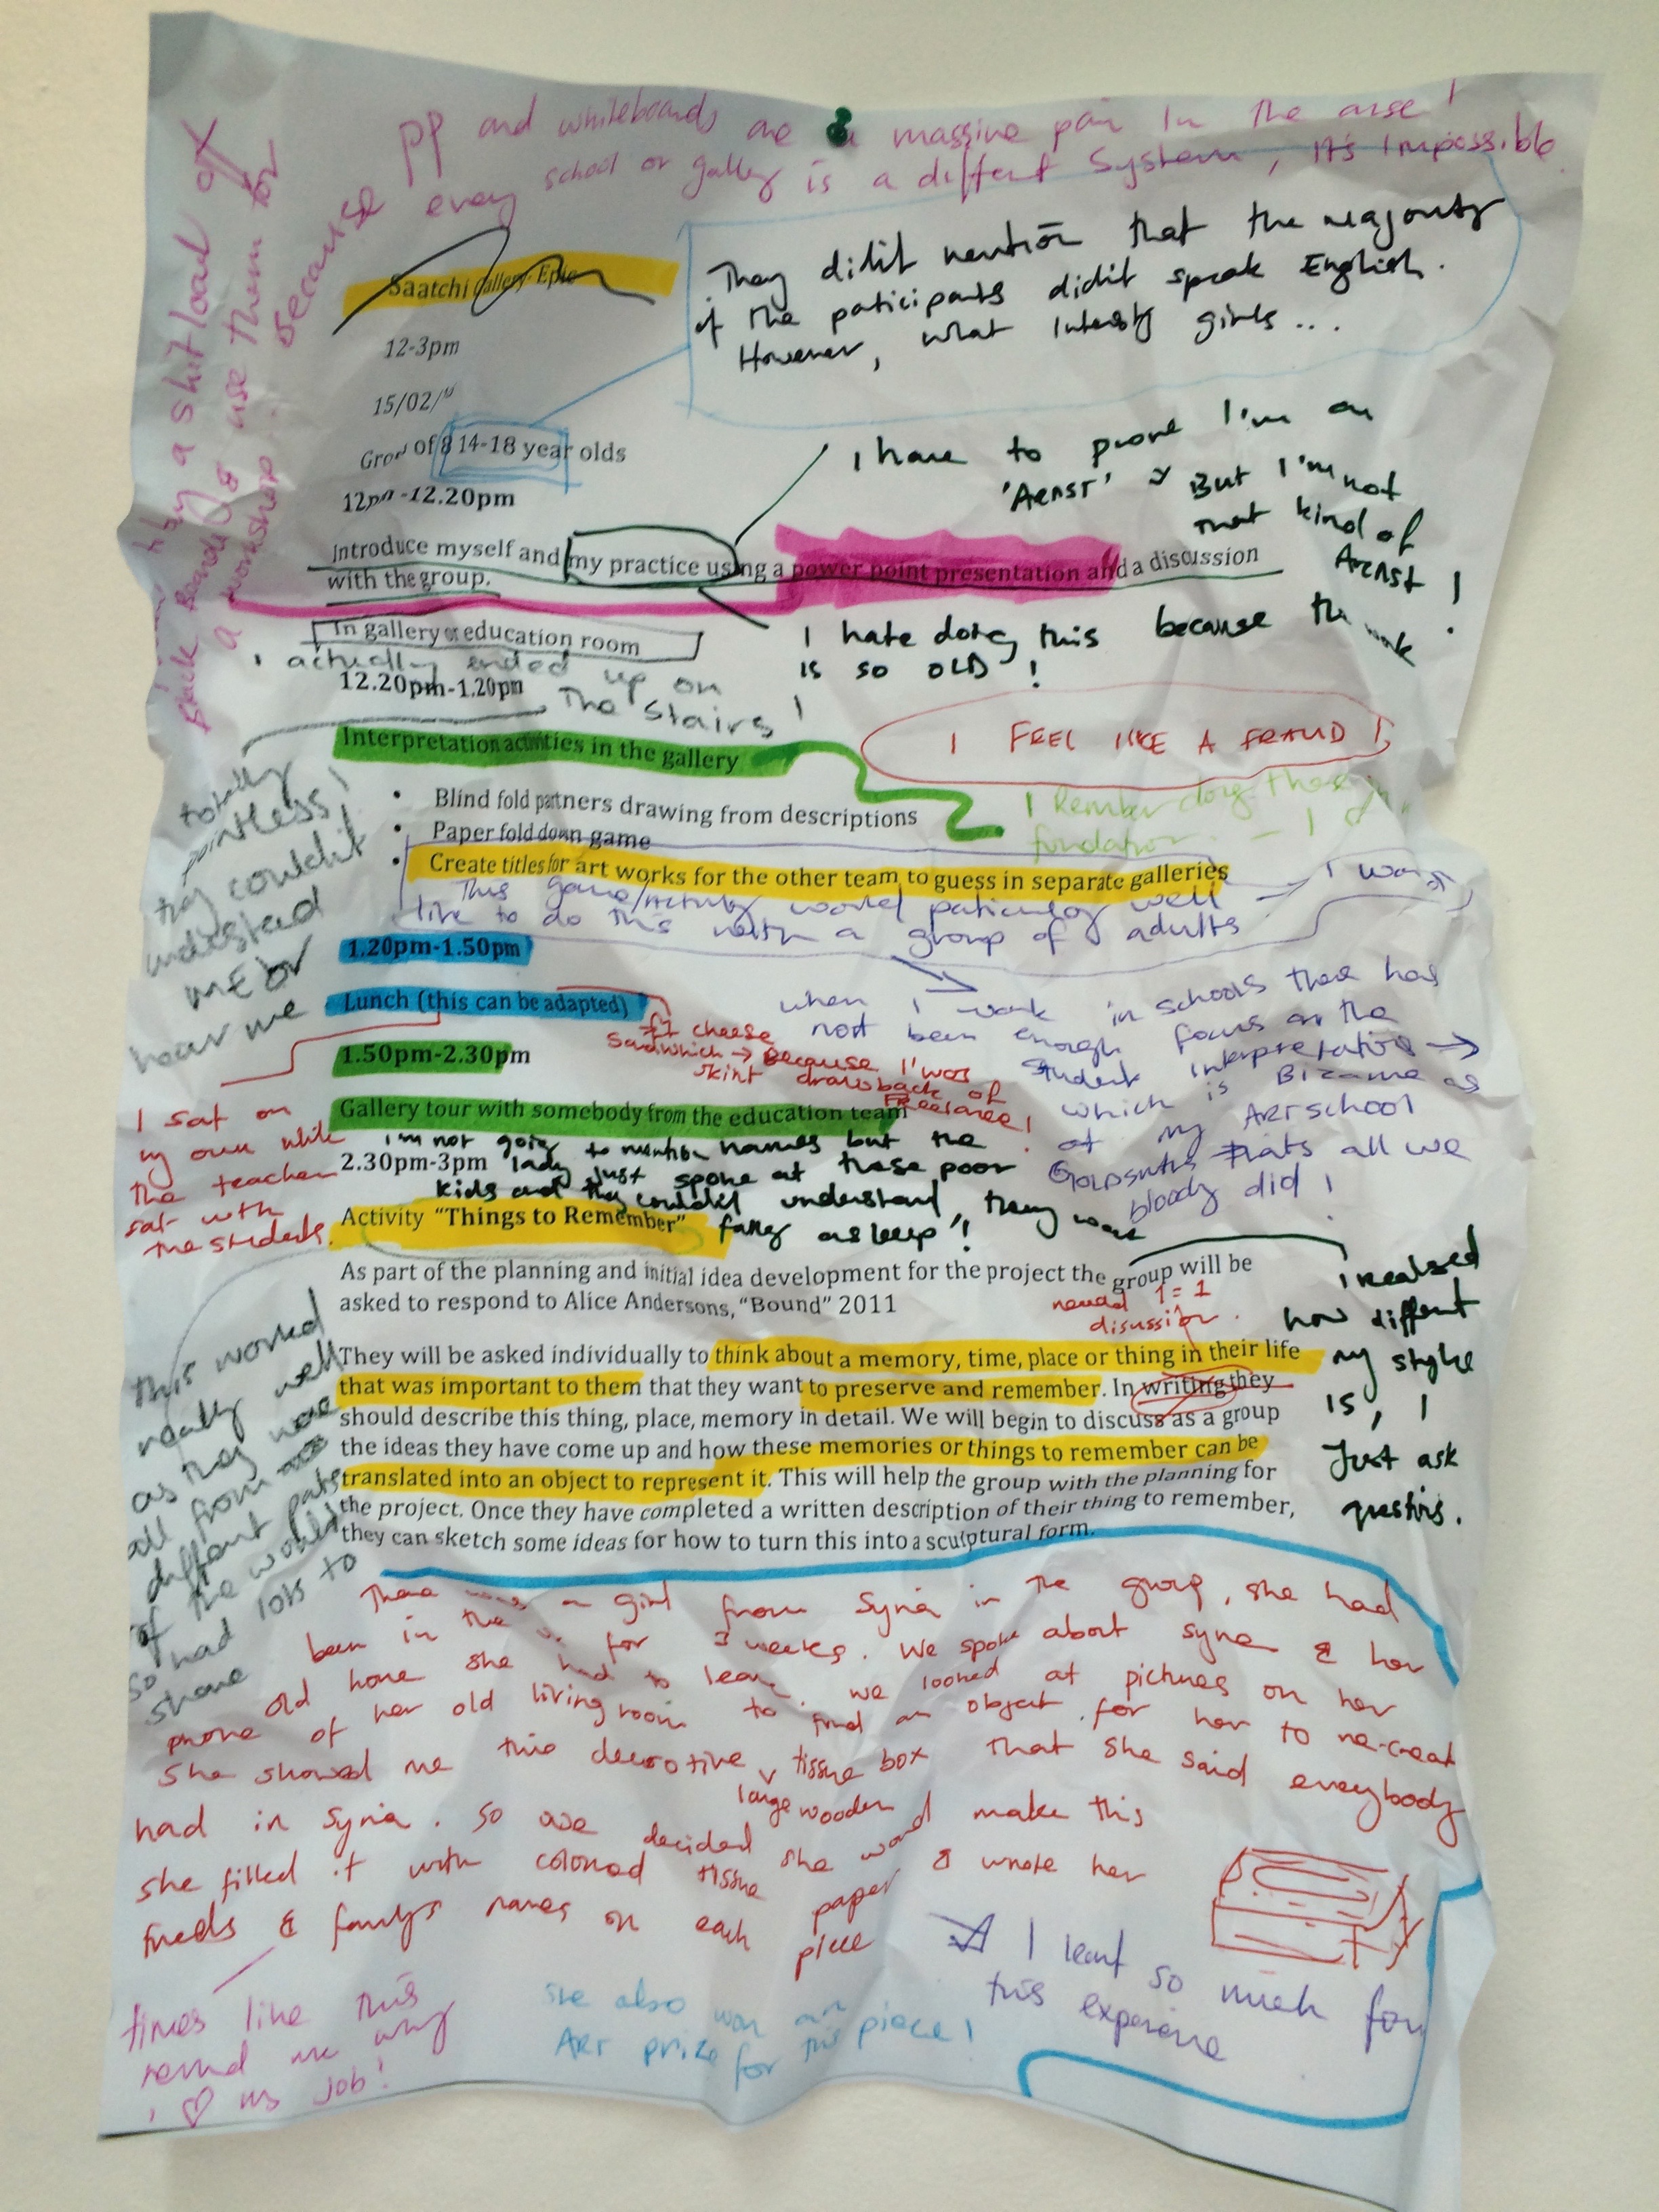 PP and whiteboards are a massive pain in the arse!
because every school or gallery is a diffent system, it's impossible
buy a shitload of
black boards & use them for
a workshop
Saatchi Gallery Epic
12-3pm
15/02/
They didn't mention that the majority
of the participants didn't speak English.
However, what intersty girls...
Group of 8 14-18 year olds
12pm-12.20pm
I have to prove I'm an
'ARTIST' But I'm not
that kind of
ARTIST!
Introduce myself and my practice using a power point presentation and a discussion
with the group.
I hate doing this because the work
is so OLD!
In gallery or education room
I actually ended up on
The Stairs!
12.20pm-1.20pm
I FEEL LIKE A FRAUD!
Interpretation activities in the gallery
totally
pointless!
they couldn't
understand
ME or
hear me
• Blind fold partners drawing from descriptions
• Paper fold down game
• Create titles for art works for the other team to guess in separate galleries
I Rember doing these
foundation
This game/activity worked paticulary well
I would
like to do this with a group of adults
1.20pm-1.50pm
Lunch (this can be adapted)
£1 cheese
sandwhich → Because I was
skint drawback of
Freelance!
when I work in schools there has
not been enough focus on the
student interpretation →
which is Bizarre as
at my Art school
Goldsmiths thats all we
bloody did!
1.50pm-2.30pm
I sat on
my own while
the teacher
sat with
the students.
Gallery tour with somebody from the education team
I'm not going to mention names but the
lady just spoke at these poor
kids and they couldn't understand, they were
falling asleep!
2.30pm-3pm
Activity “Things to Remember”
As part of the planning and initial idea development for the project the group will be
asked to respond to Alice Andersons, “Bound” 2011
I realised
how diffent
my style
is, I
Just ask
questions.
needed 1=1
disussion.
They will be asked individually to think about a memory, time, place or thing in their life
that was important to them that they want to preserve and remember. In writing they
should describe this thing, place, memory in detail. We will begin to discuss as a group
the ideas they have come up and how these memories or things to remember can be
translated into an object to represent it. This will help the group with the planning for
the project. Once they have completed a written description of their thing to remember,
they can sketch some ideas for how to turn this into a sculptural form.
This worked
really well
as they were
all from
diffent parts
of the world
so had lots to
share
There was a girl from Syria in the group, she had
been in the for 3 weeks. We spoke about syria & her
old home she had to leave. we looked at pictures on her
phone of her old living room to find an object for her to re-creat
She showed me this decorotive large wooden tissue box that she said everybody
had in Syria. So we decided she would make this
she filled it with colored tissue paper & wrote her
frieds & familys names on each piece
I learnt so much from
this experience
times like this
remind me why
I ♡ my job!
She also won an
ART prize for this piece!